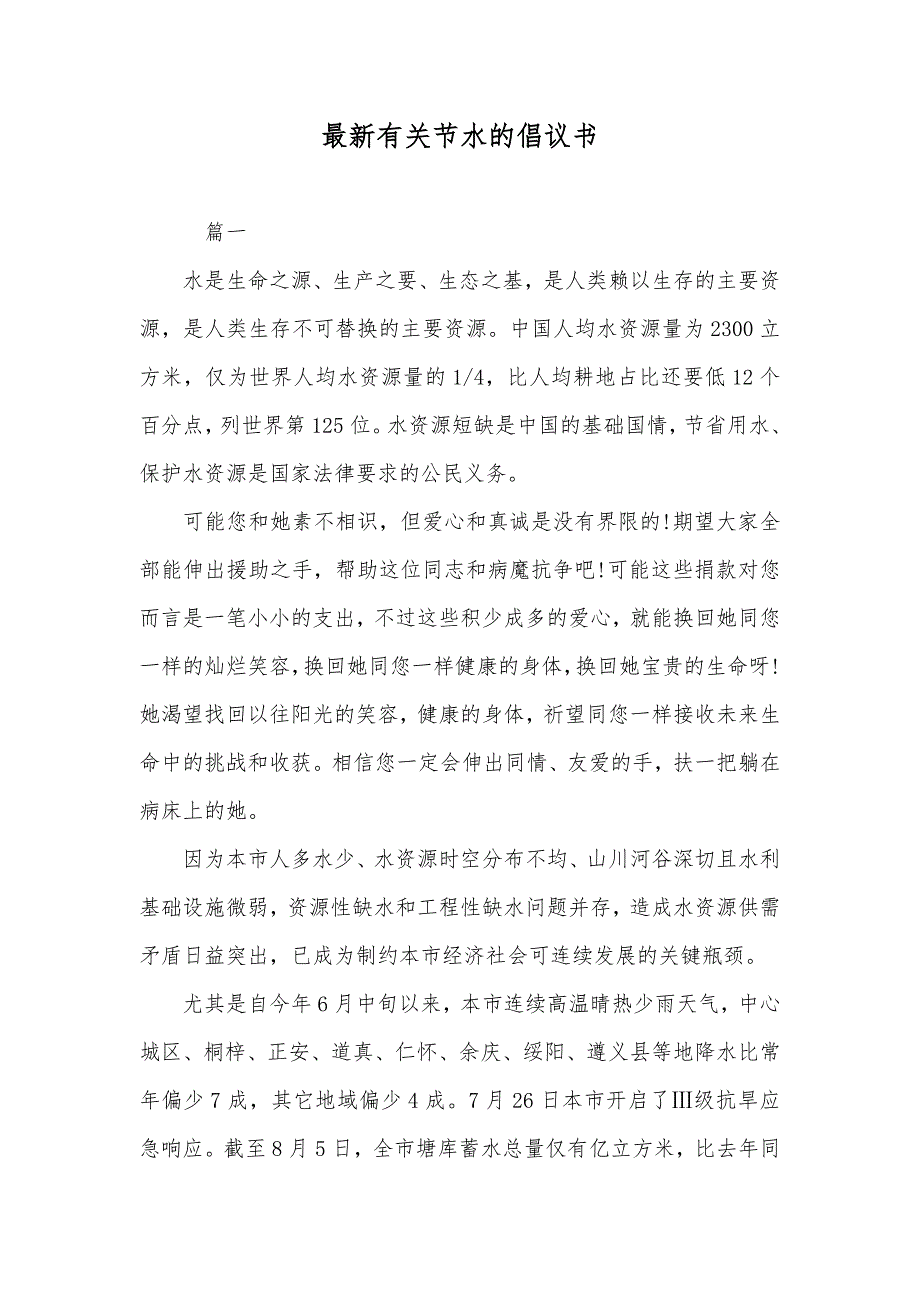 最新有关节水的倡议书
篇一
水是生命之源、生产之要、生态之基，是人类赖以生存的主要资
源，是人类生存不可替换的主要资源。中国人均水资源量为2300立
方米，仅为世界人均水资源量的1/4，比人均耕地占比还要低12个
百分点，列世界第125位。水资源短缺是中国的基础国情，节省用水、
保护水资源是国家法律要求的公民义务。
可能您和她素不相识，但爱心和真诚是没有界限的!期望大家全
部能伸出援助之手，帮助这位同志和病魔抗争吧!可能这些捐款对您
而言是一笔小小的支出，不过这些积少成多的爱心，就能换回她同您
一样的灿烂笑容，换回她同您一样健康的身体，换回她宝贵的生命呀!
她渴望找回以往阳光的笑容，健康的身体，祈望同您一样接收未来生
命中的挑战和收获。相信您一定会伸出同情、友爱的手，扶一把躺在
病床上的她。
因为本市人多水少、水资源时空分布不均、山川河谷深切且水利
基础设施微弱，资源性缺水和工程性缺水问题并存，造成水资源供需
矛盾日益突出，已成为制约本市经济社会可连续发展的关键瓶颈。
尤其是自今年6月中旬以来，本市连续高温晴热少雨天气，中心
城区、桐梓、正安、道真、仁怀、余庆、绥阳、遵义县等地降水比常
年偏少7成，其它地域偏少4成。7月26日本市开启了Ⅲ级抗旱应
急响应。截至8月5日，全市塘库蓄水总量仅有亿立方米，比去年同